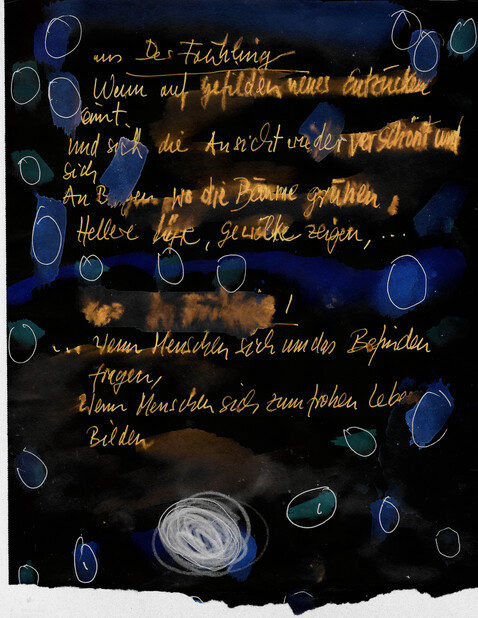 aus Der Frühling
Wenn auf gefilden neues Entzücken
keimt.
und sich die Ansicht wieder verschönt und
sich
An Bergen, wo die Bäume grünen,
Hellere Lüfte, gewölke zeigen, ...
!
... wenn Menschen sich um das Befinden
fragen,
Wenn Menschen sich zum frohen Leben
Bilden